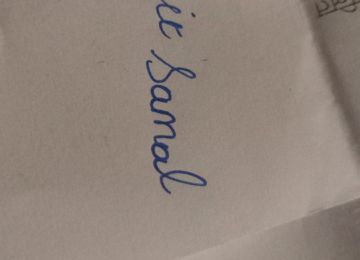 it Samal